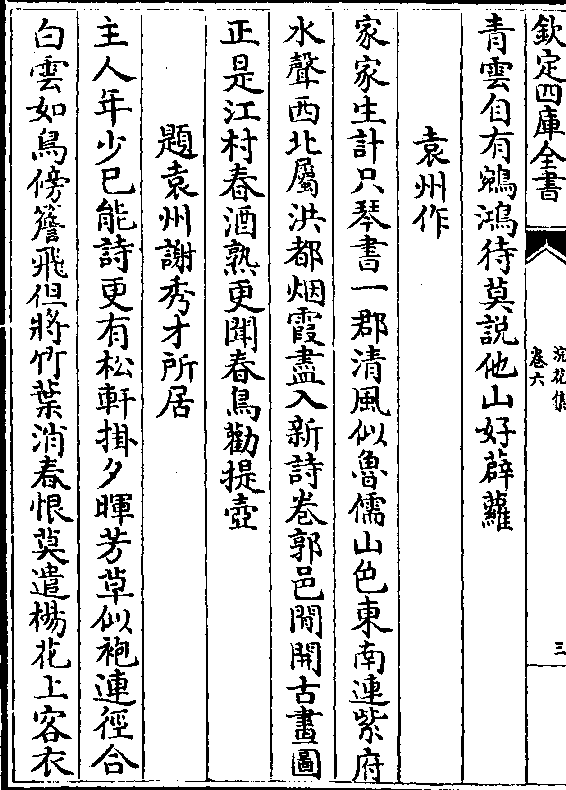 欽定四庫全書
浣花集
卷六
三
青雲自有鵷鴻待莫説他山好薜蘿
袁州作
家家生計只琴書一郡清風似魯儒山色東南連紫府
水聲西北屬洪都烟霞盡入新詩卷郭邑閒開古畫圖
正是江村春酒熟更聞春鳥勸提壺
題袁州謝秀才所居
主人年少已能詩更有松軒掛夕暉芳草似袍連徑合
白雲如鳥傍簷飛但將竹葉消春恨莫遣楊花上客衣